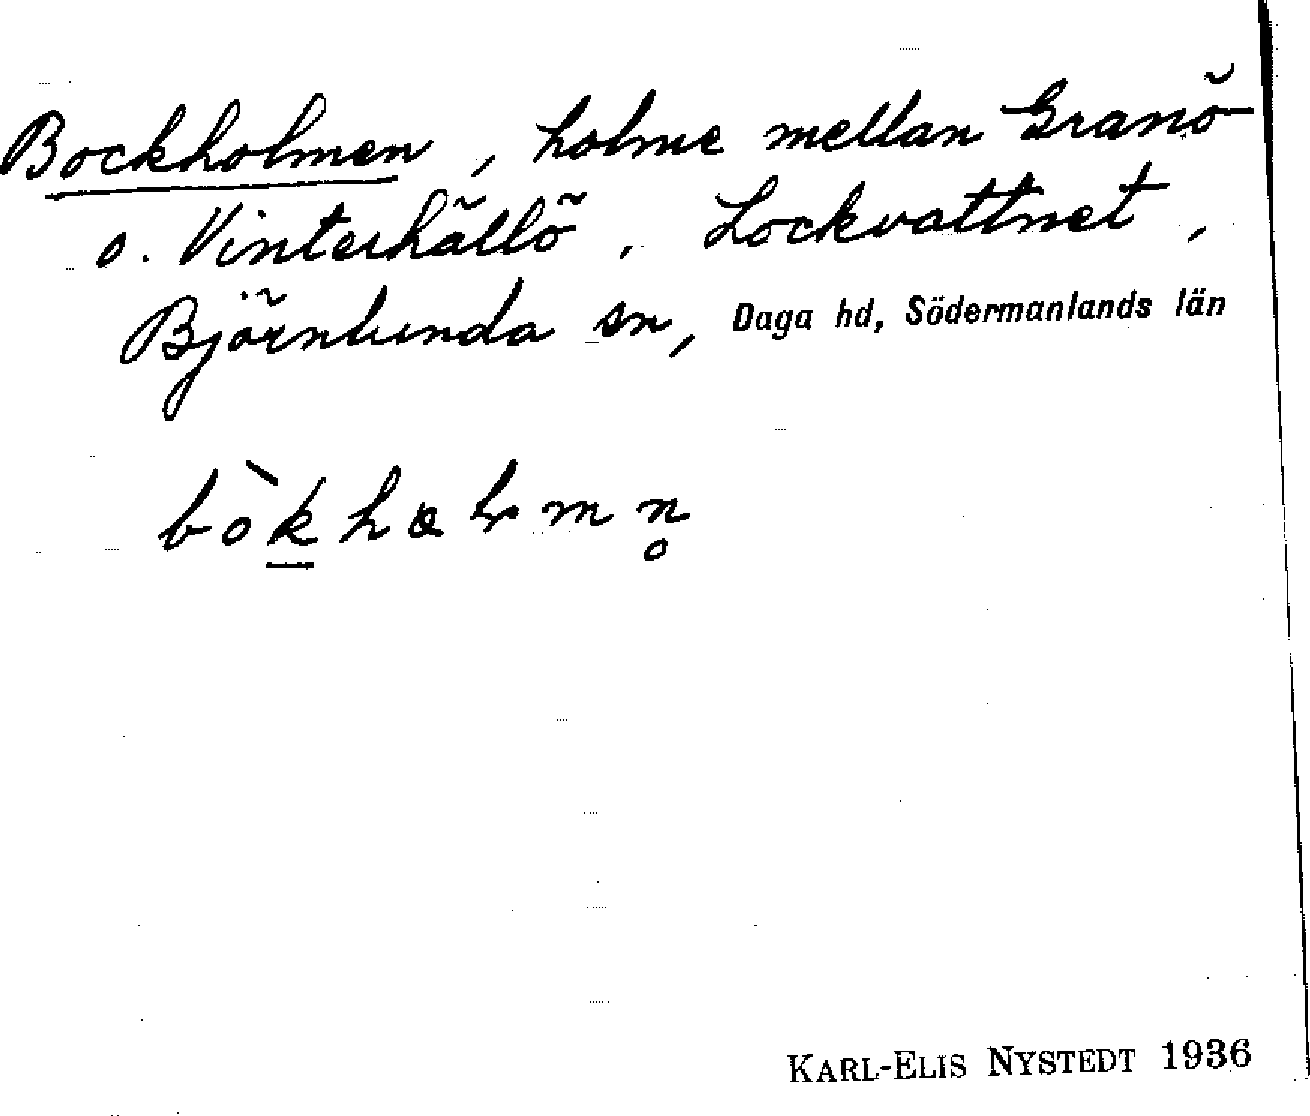 Bockholmen, holme mellan Granö
o. Vinterhällö, Lockvattnet,
Björnlunda sn, Daga hd, Södermanlands län
bòkhɷlmn̥
KARL-ELIS NYSTEDT 1936